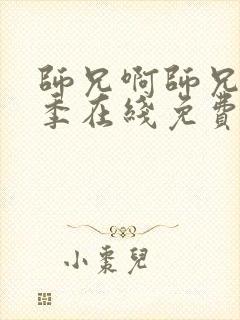 師兄啊師兄
季在綫免費
小棗兒